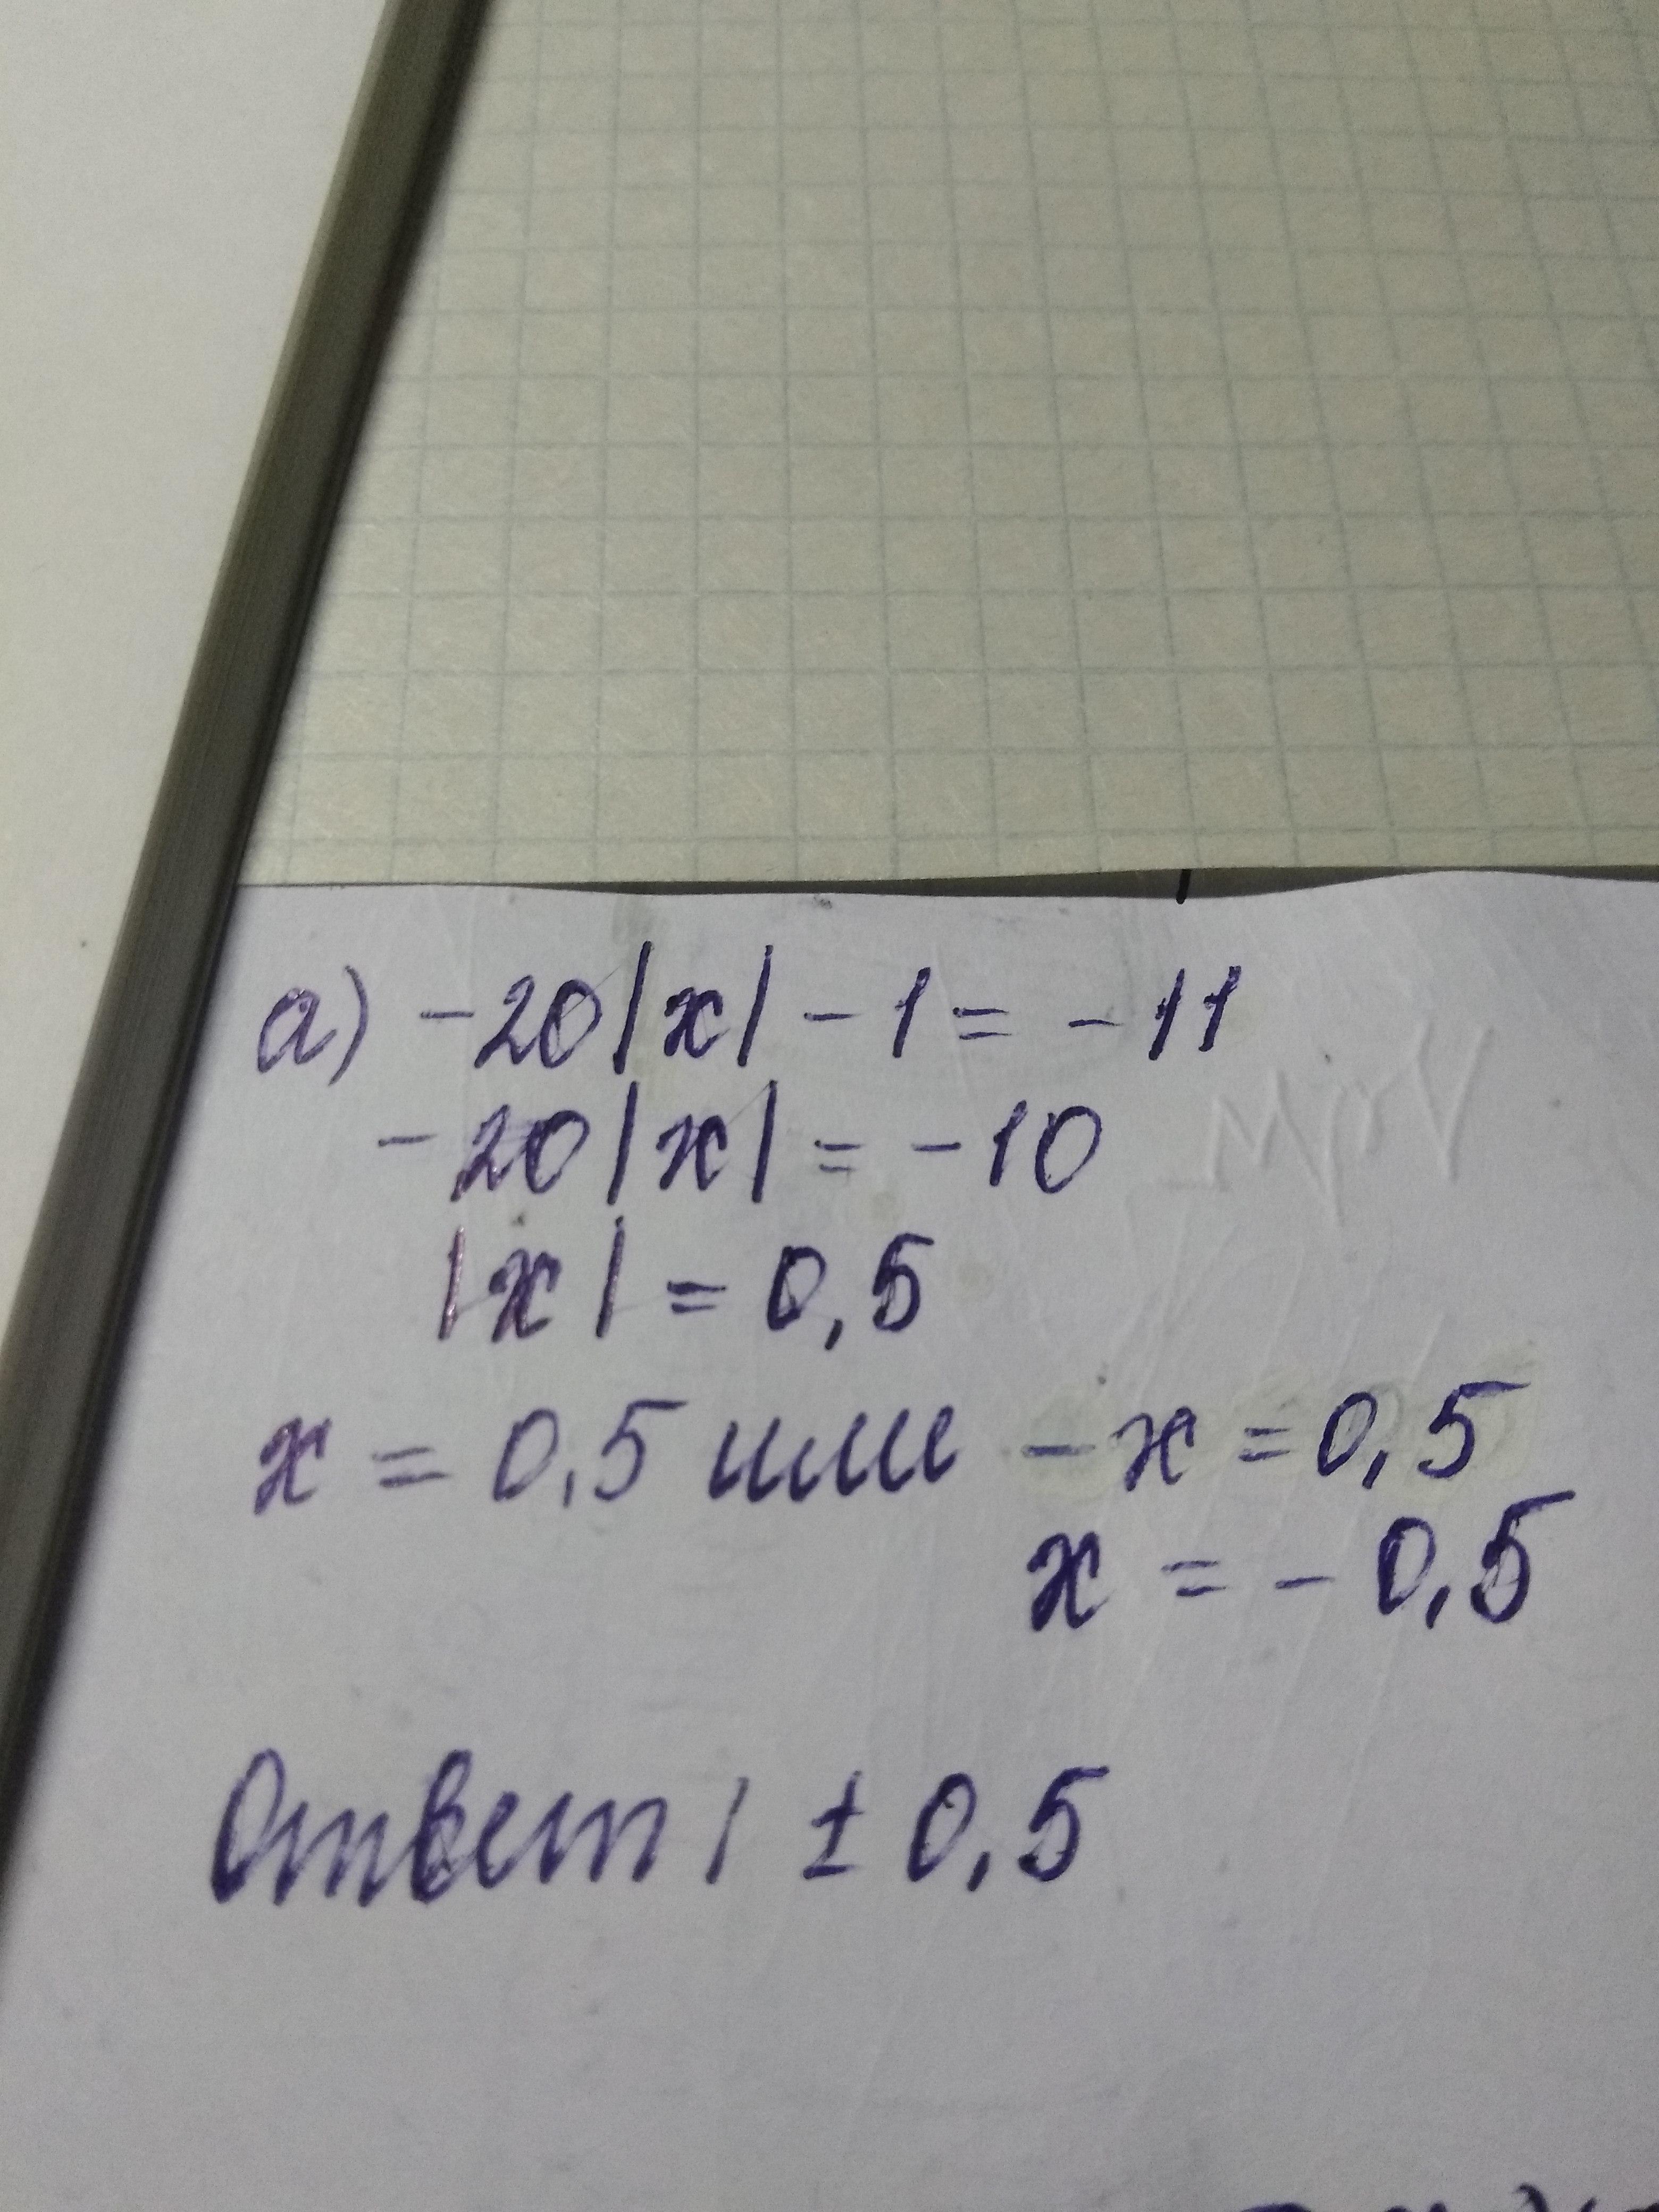 а) -20|x| - 1 = -11
-20|x| = -10
|x| = 0,5
x = 0,5 или -x = 0,5
x = -0,5
Ответ: ± 0,5